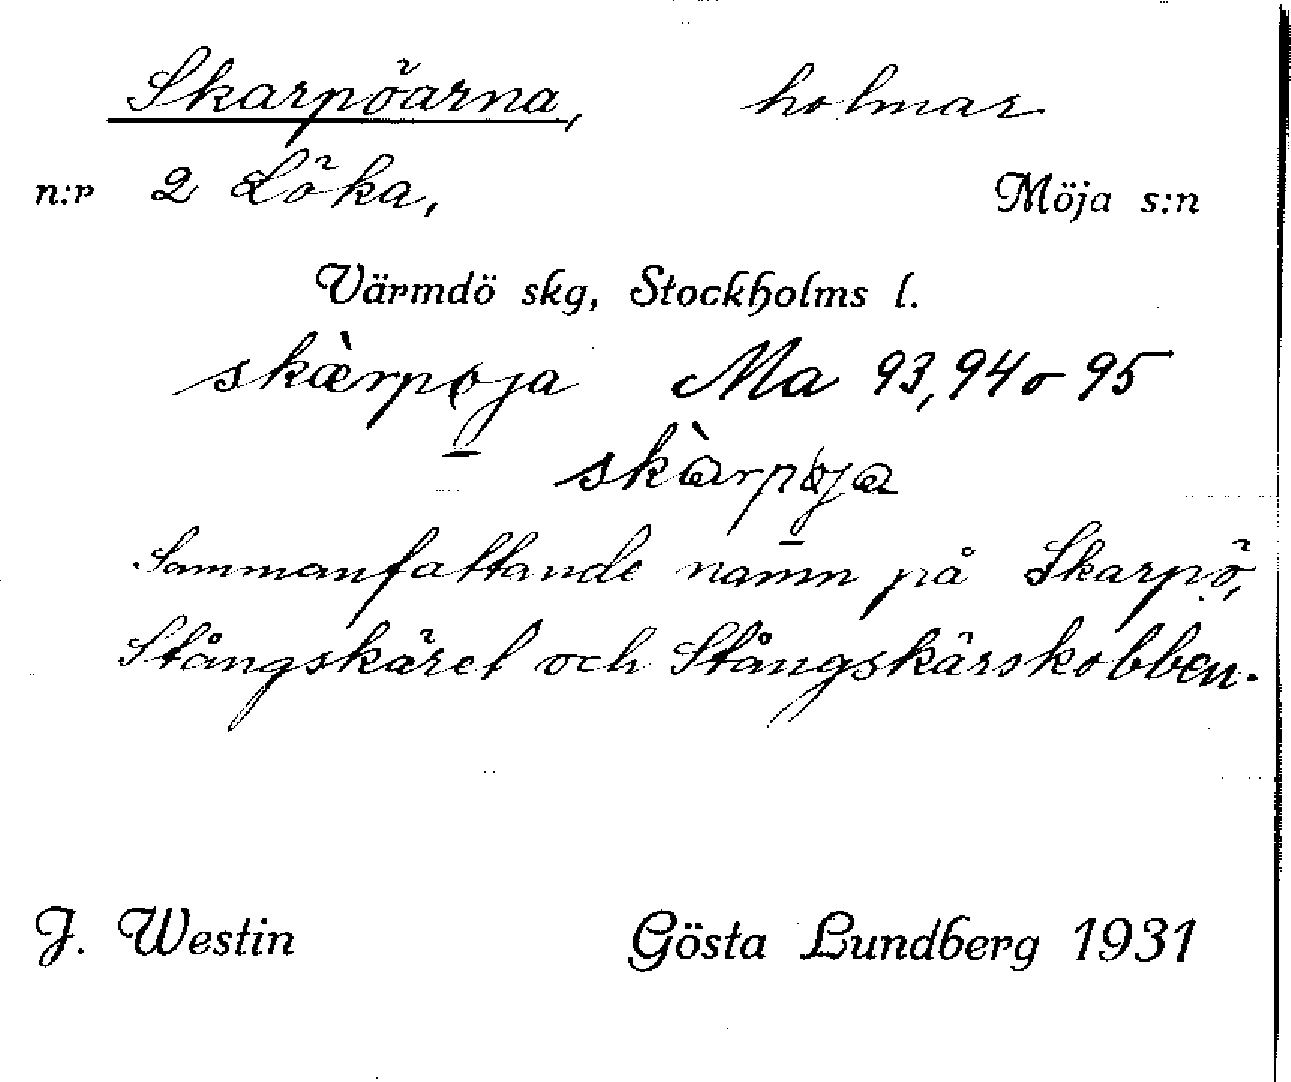 Skarpöarna, holmar
n:r 2 Löka, Möja s:n
Värmdö skg, Stockholms l.
skæ̀rpøja Ma 93, 94 o 95
skàrpøja
Sammanfattande namn på Skarpö,
Stångskäret och Stångskärskobben.
J. Westin Gösta Lundberg 1931